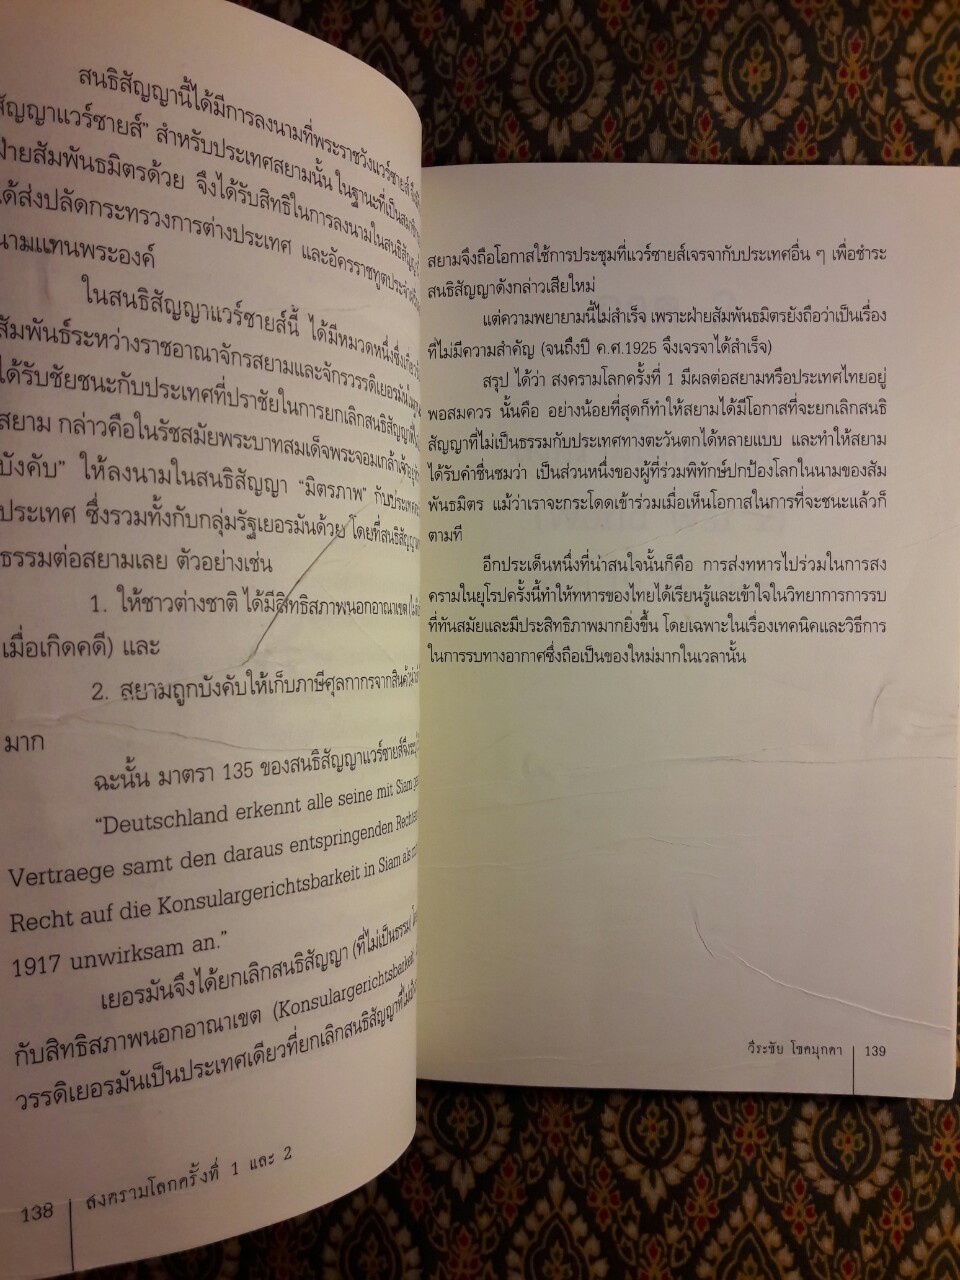 สนธิสัญญานี้ได้มีการลงนามที่พระราชวังแวร์ซายส์
สัญญาแวร์ซายส์” สำหรับประเทศสยามนั้น ในฐานะที่เป็น
ฝ่ายสัมพันธมิตรด้วย จึงได้รับสิทธิในการลงนามในสนธิสัญญา
ได้ส่งปลัดกระทรวงการต่างประเทศ และอัครราชทูต
นามแทนพระองค์
ในสนธิสัญญาแวร์ซายส์นี้ ได้มีหมวดหนึ่งซึ่ง
สัมพันธ์ระหว่างราชอาณาจักรสยามและจักรวรรดิเยอรมัน
ได้รับชัยชนะกับประเทศที่ปราชัยในการยกเลิกสนธิสัญญา
สยาม กล่าวคือในรัชสมัยพระบาทสมเด็จพระจอมเกล้า
บังคับ” ให้ลงนามในสนธิสัญญา “มิตรภาพ” กับ
ประเทศ ซึ่งรวมทั้งกับกลุ่มรัฐเยอรมันด้วย โดยที่
ธรรมต่อสยามเลย ตัวอย่างเช่น
1. ให้ชาวต่างชาติ ได้มีสิทธิสภาพนอกอาณาเขต
เมื่อเกิดคดี) และ
2. สยามถูกบังคับให้เก็บภาษีศุลกากรจากสินค้า
มาก
ฉะนั้น มาตรา 135 ของสนธิสัญญาแวร์ซายส์จึง
“Deutschland erkennt alle seine mit Siam
Vertraege samt den daraus entspringenden
Recht auf die Konsulargerichtsbarkeit in Siam als
1917 unwirksam an.”
เยอรมันจึงได้ยกเลิกสนธิสัญญา (ที่ไม่เป็นธรรม)
กับสิทธิสภาพนอกอาณาเขต (Konsulargerichtsbarkeit
วรรดิเยอรมันเป็นประเทศเดียวที่ยกเลิกสนธิสัญญา
138 สงครามโลกครั้งที่ 1 และ 2
สยามจึงถือโอกาสใช้การประชุมที่แวร์ซายส์เจรจากับประเทศอื่น ๆ เพื่อชำระ
สนธิสัญญาดังกล่าวเสียใหม่
แต่ความพยายามนี้ไม่สำเร็จ เพราะฝ่ายสัมพันธมิตรยังถือว่าเป็นเรื่อง
ที่ไม่มีความสำคัญ (จนถึงปี ค.ศ.1925 จึงเจรจาได้สำเร็จ)
สรุป ได้ว่า สงครามโลกครั้งที่ 1 มีผลต่อสยามหรือประเทศไทยอยู่
พอสมควร นั้นคือ อย่างน้อยที่สุดก็ทำให้สยามได้มีโอกาสที่จะยกเลิกสนธิ
สัญญาที่ไม่เป็นธรรมกับประเทศทางตะวันตกได้หลายแบบ และทำให้สยาม
ได้รับคำชื่นชมว่า เป็นส่วนหนึ่งของผู้ที่ร่วมพิทักษ์ปกป้องโลกในนามของสัม
พันธมิตร แม้ว่าเราจะกระโดดเข้าร่วมเมื่อเห็นโอกาสในการที่จะชนะแล้วก็
ตามที
อีกประเด็นหนึ่งที่น่าสนใจนั้นก็คือ การส่งทหารไปร่วมในการสง
ครามในยุโรปครั้งนี้ทำให้ทหารของไทยได้เรียนรู้และเข้าใจในวิทยาการการรบ
ที่ทันสมัยและมีประสิทธิภาพมากยิ่งขึ้น โดยเฉพาะในเรื่องเทคนิคและวิธีการ
ในการรบทางอากาศซึ่งถือเป็นของใหม่มากในเวลานั้น
วีระชัย โชคมุกดา 139